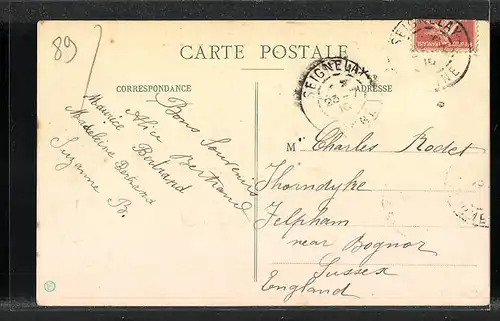 89
CARTE POSTALE
CORRESPONDANCE
ADRESSE
Bons Souvenirs
Alice Bertrand
Maurice Bertrand
Madeleine Bertrand
Suzanne B.
M Charles Rodet
Thorndyke
Felpham
near Bognor
Sussex
England
SEIGNELAY
23
16
YONNE
SEIGNELAY
16